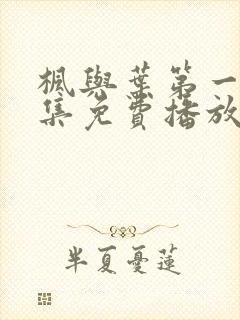 楓與葉第一
集免費播放
半夏憂蓮